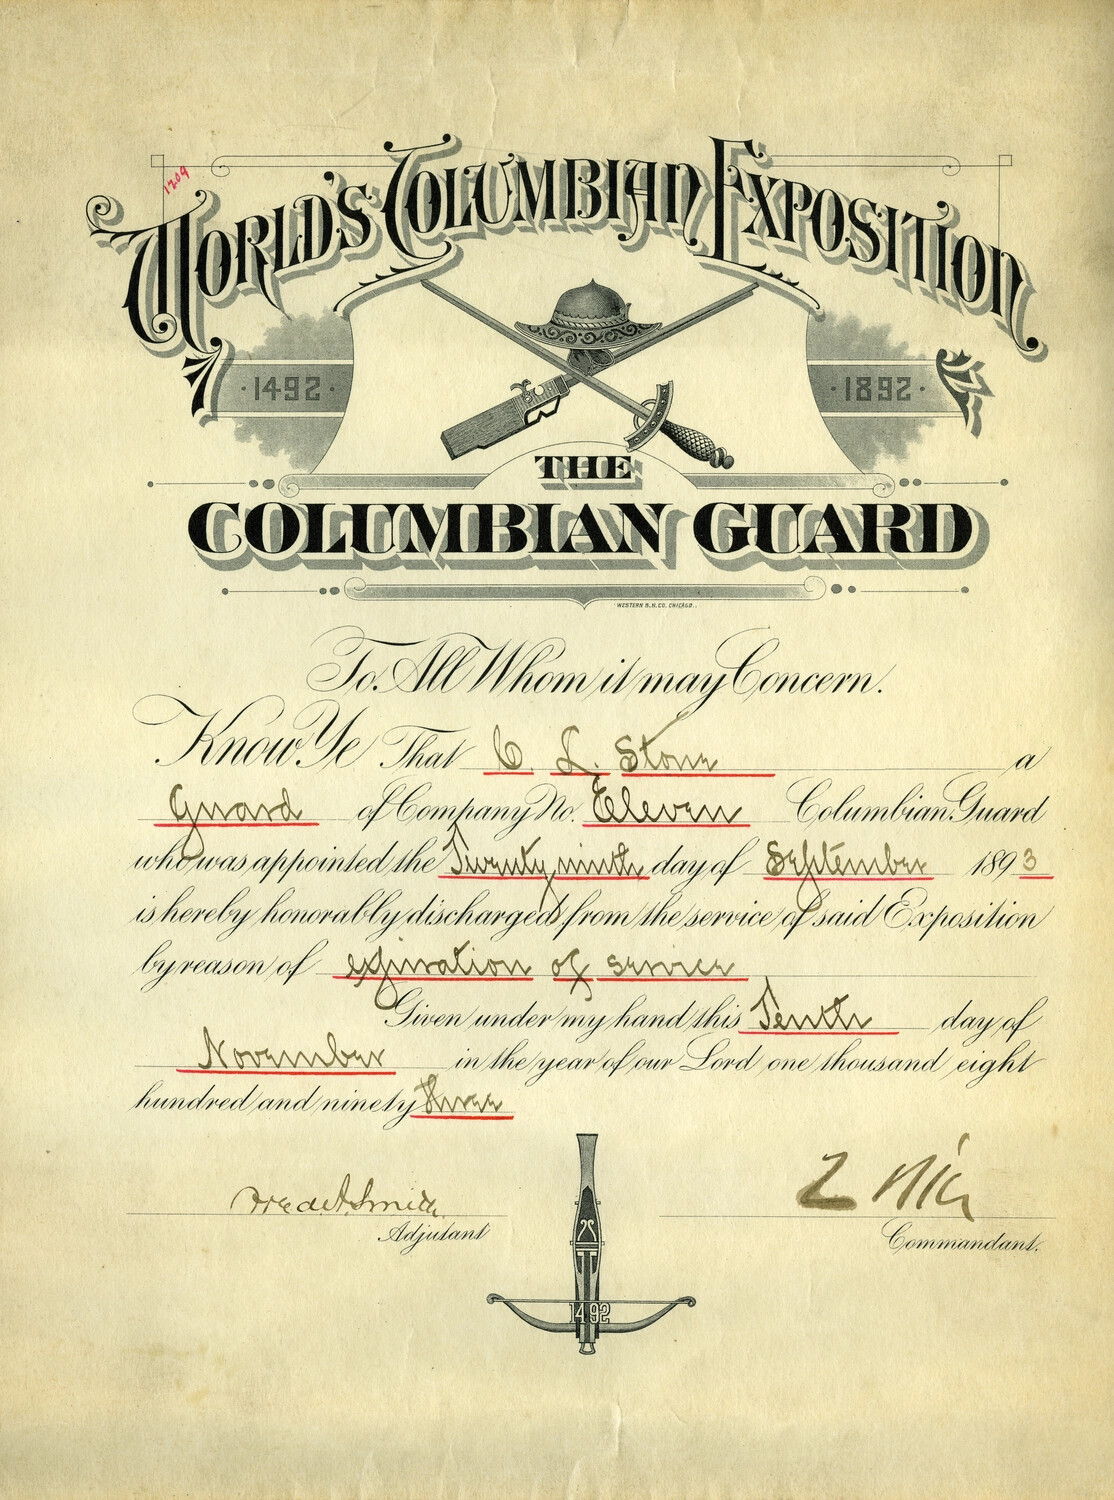 1209
WORLD'S COLUMBIAN EXPOSITION
·1492· ·1892·
THE
COLUMBIAN GUARD
WESTERN B.N.CO. CHICAGO.
To All Whom it may Concern.
Know Ye That C. L. Stone a
Guard of Company No. Eleven Columbian Guard
who was appointed the Twenty ninth day of September 1893
is hereby honorably discharged from the service of said Exposition
by reason of expiration of service
Given under my hand this Tenth day of
November in the year of our Lord one thousand eight
hundred and ninety three
Fred A. Smith
Adjutant Commandant.
1492